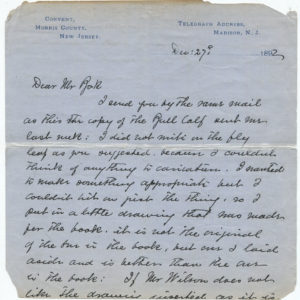 CONVENT,
MORRIS COUNTY,
NEW JERSEY.
TELEGRAPH ADDRESS,
MADISON, N. J.
Dec: 27th 1892
Dear Mr
I send you by the same mail
as this the copy of the Bull Calf sent me
last week: I did not write in the fly
leaf as you suggested, because I couldn't
think of anything to caricature. I wanted
to make something appropriate but I
couldn't hit on just the thing, so I
put in a little drawing that was made
for the book, it is not the original
of the one in the book, but one I laid
aside and is better than the one
in the book: If Mr Wilson does not
like the drawing inserted as it is